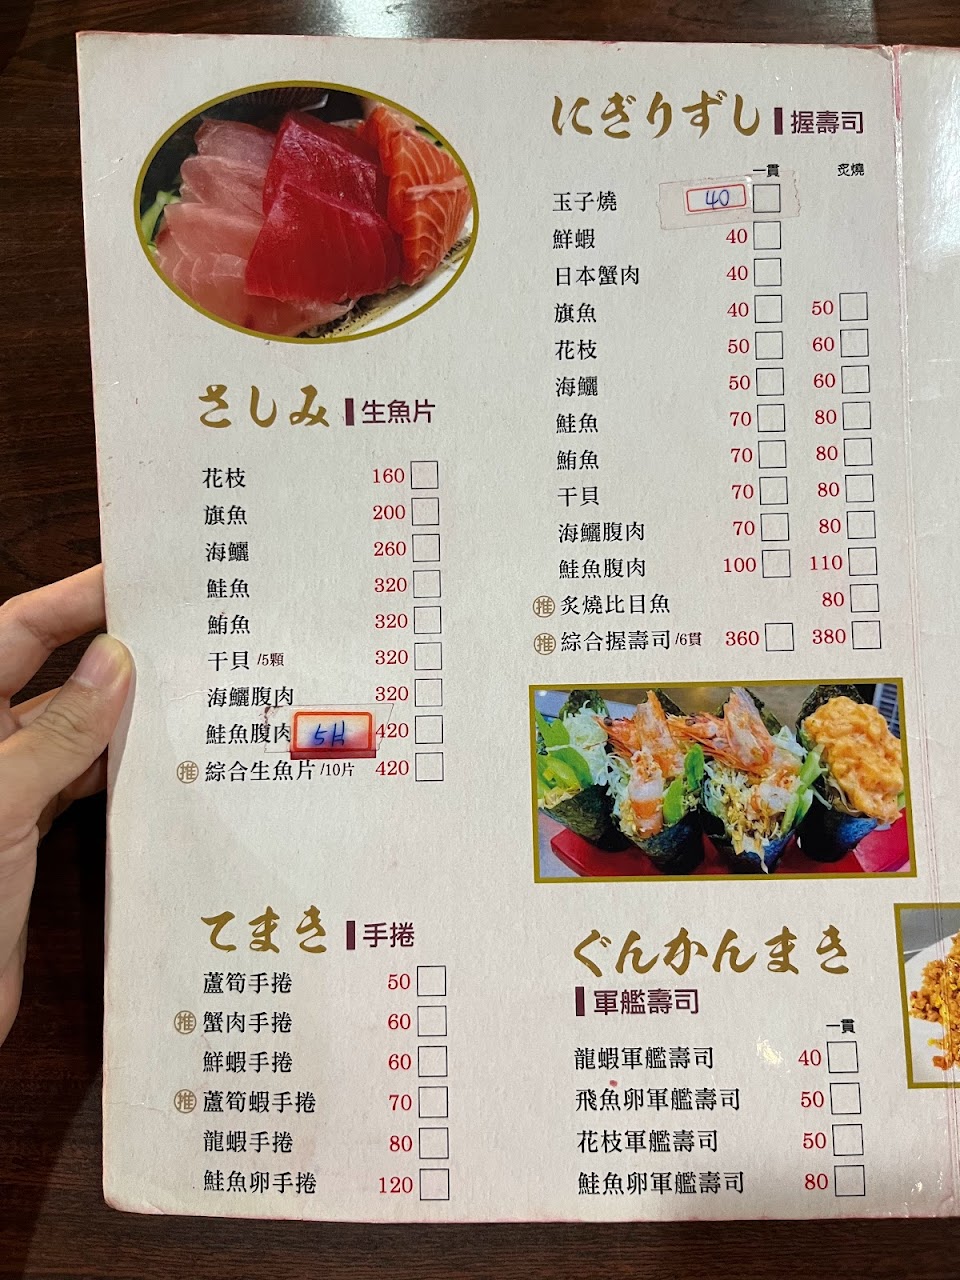 さしみ 生魚片
花枝 160
旗魚 200
海鱺 260
鮭魚 320
鮪魚 320
干貝 /5顆 320
海鱺腹肉 320
鮭魚腹肉 5片 420
推 綜合生魚片 /10片 420
てまき 手捲
蘆筍手捲 50
推 蟹肉手捲 60
鮮蝦手捲 60
推 蘆筍蝦手捲 70
龍蝦手捲 80
鮭魚卵手捲 120
にぎりずし 握壽司
一貫 炙燒
玉子燒 40
鮮蝦 40
日本蟹肉 40
旗魚 40 50
花枝 50 60
海鱺 50 60
鮭魚 70 80
鮪魚 70 80
干貝 70 80
海鱺腹肉 70 80
鮭魚腹肉 100 110
推 炙燒比目魚 80
推 綜合握壽司 /6貫 360 380
ぐんかんまき
軍艦壽司
一貫
龍蝦軍艦壽司 40
飛魚卵軍艦壽司 50
花枝軍艦壽司 50
鮭魚卵軍艦壽司 80